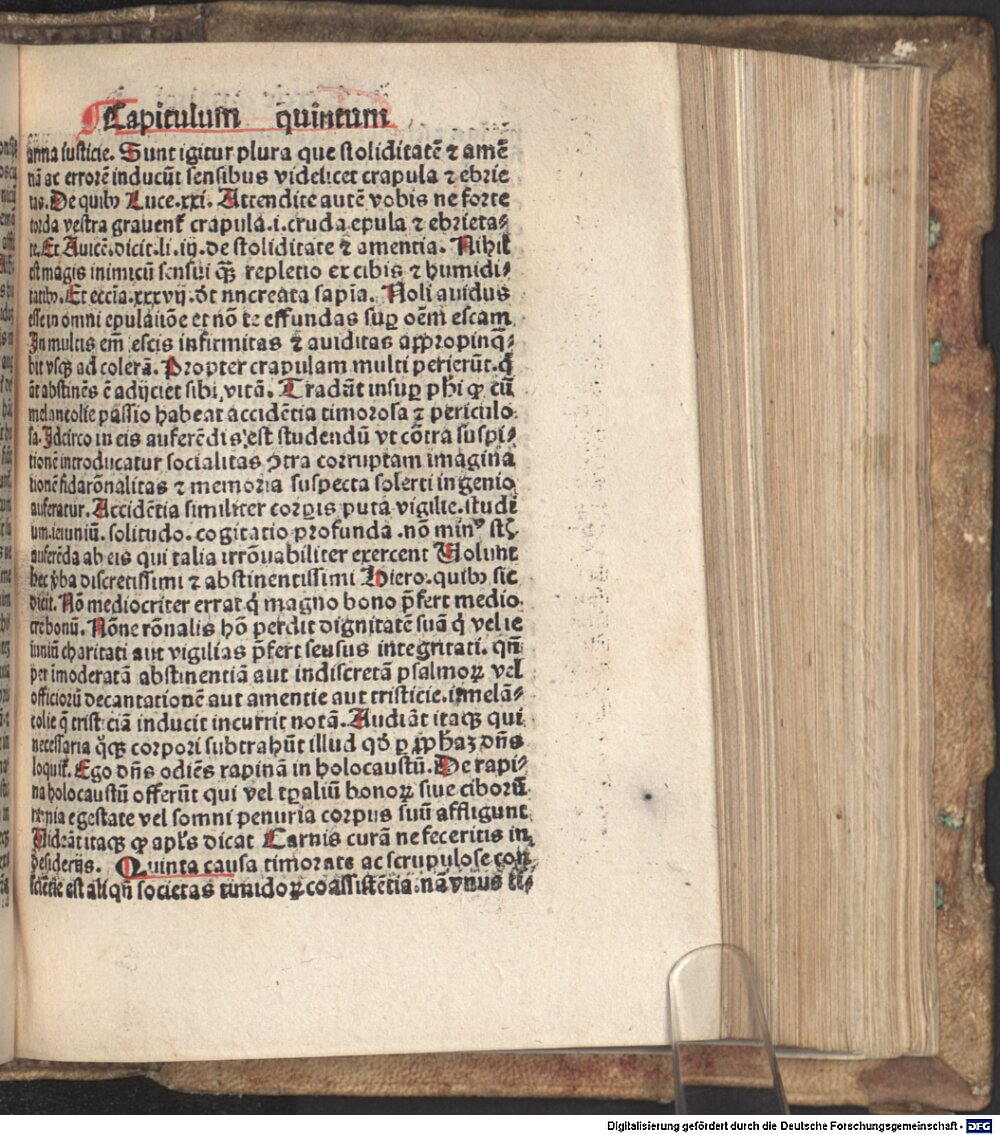 Capitulum quintum
arma iusticie. Sunt igitur plura que stoliditatē ⁊ amē
tiā ac errorē inducūt sensibus videlicet crapula ⁊ ebrie
tas. De quibꝰ Luce.xxi. Attendite autē vobis ne forte
corda vestra grauent᷑ crapula.i.cruda epula ⁊ ebrieta⸗
te. Et Auicē.dicit.li.iij.de stoliditate ⁊ amentia. Nihil
est magis inimicū sensui qȝ̄ repletio ex cibis ⁊ humidi⸗
tatibꝰ. Et eccīa.xxxvij.dt̄ increata sapīa. Noli auidus
esse in omni epulatiōe et nō te effundas suꝑ oēm escam
In multis em̄ escis infirmitas ⁊ auiditas aꝓpropinq̄⸗
bit vsqȝ ad colerā. Propter crapulam multi perierūt. q̄
āt abstinēs ē adijciet sibi vitā. Tradūt insuꝑ phi ꝙ cū
melancolie passio habeat accidētia timorosa ⁊ periculo
sa. Idcirco in eis auferēdis est studendū vt cōtra suspi⸗
tionē introducatur socialitas ꝯtra corruptam imagina
tionē fida rōnalitas ⁊ memoria suspecta solerti ingenio
auferatur. Accidētia similiter corpis puta vigilie. studi
um. ieiuniū. solitudo. cogitatio profunda. nō minꝰ st̄
auferēda ab eis qui talia irrōnabiliter exercent Uolunt
hec v̄ba discretissimi ⁊ abstinentissimi Hiero. quibꝰ sic
dicit. Nō mediocriter errat q̄ magno bono p̄fert medio
cre bonū. Nōne rōnalis hō perdit dignitatē suā q̄ vel ie
iuniū charitati aut vigilias p̄fert sensus integritati. qn̄
per īmoderatā abstinentiā aut indiscretā psalmoꝝ vel
officiorū decantationē aut amentie aut tristicie. i. melā⸗
colie q̄ tristiciā inducit incurrit notā. Audiāt itaqȝ qui
necessaria q̄qȝ corpori subtrahūt illud qd̄ ꝑ ꝓphaȝ dn̄s
loquit᷑. Ego dn̄s odiēs rapinā in holocaustū. De rapi⸗
na holocaustū offerūt qui vel tꝑaliū honoꝝ siue ciborū
nimia egestate vel somni penuria corpus suū affligunt
Uideāt itaqȝ ꝙ apl̄s dicat Carnis curā ne feceritis in
desiderijs. Quinta causa timorate ac scrupulose con
sciētie est aliqn̄ societas timidoꝝ coassistētia. nā vnus ti⸗
Digitalisierung gefördert durch die Deutsche Forschungsgemeinschaft - DFG